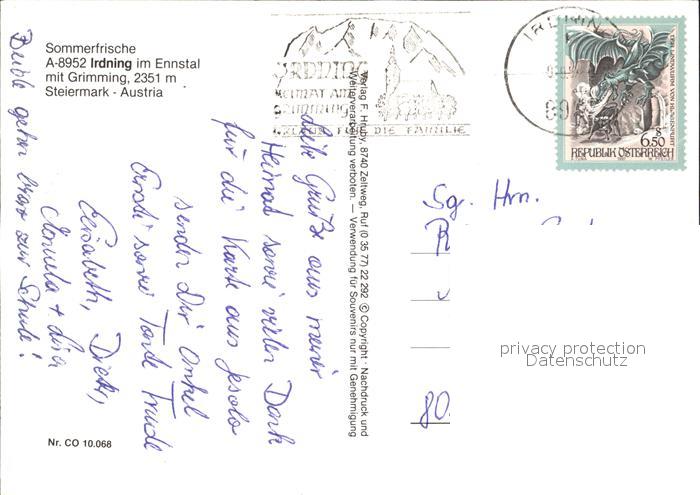 Sommerfrische
A-8952 Irdning im Ennstal
mit Grimming, 2351 m
Steiermark - Austria
IRDNING
HEIMAT AM
GRIMMING
URLAUB FÜR DIE FAMILIE
IRDNING
6.50
REPUBLIK ÖSTERREICH
Verlag F. Hruby, 8740 Zeltweg, Ruf (0 35 77) 22 292 © Copyright - Nachdruck und
Weiterverarbeitung verboten. — Verwendung für Souvenirs nur mit Genehmigung
Liebe Grüße aus meiner
Heimat sowie vielen Dank
für die Karte aus Jesolo
senden Dir Onkel
Erich sowie Tante Trude
Elisabeth,
Manuela +
Beide gehen brav zur Schule!
Sg. Hrn.
R
80
privacy protection
Datenschutz
Nr. CO 10.068